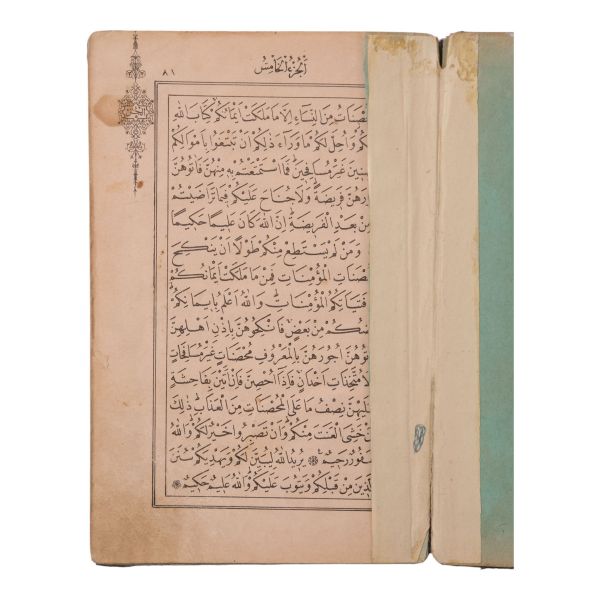 اَلْجُزْءُ الْخَامِسُ
٨١
صَنَاتُ مِنَ النِّسَاءِ اِلَّا مَا مَلَكَتْ اَيْمَانُكُمْ كِتَابَ اللّٰهِ
كُمْ وَاُحِلَّ لَكُمْ مَا وَرَاءَ ذٰلِكُمْ اَنْ تَبْتَغُوا بِاَمْوَالِكُمْ
نِينَ غَيْرَ مُسَافِحِينَ فَمَا اسْتَمْتَعْتُمْ بِهِ مِنْهُنَّ فَاٰتُوهُنَّ
ورَهُنَّ فَرِيضَةً وَلَا جُنَاحَ عَلَيْكُمْ فِيمَا تَرَاضَيْتُمْ
مِنْ بَعْدِ الْفَرِيضَةِ اِنَّ اللّٰهَ كَانَ عَلِيمًا حَكِيمًا
وَمَنْ لَمْ يَسْتَطِعْ مِنْكُمْ طَوْلًا اَنْ يَنْكِحَ
صَنَاتِ الْمُؤْمِنَاتِ فَمِنْ مَا مَلَكَتْ اَيْمَانُكُمْ
فَتَيَاتِكُمُ الْمُؤْمِنَاتِ وَاللّٰهُ اَعْلَمُ بِاِيمَانِكُمْ
ضُكُمْ مِنْ بَعْضٍ فَانْكِحُوهُنَّ بِاِذْنِ اَهْلِهِنَّ
تُوهُنَّ اُجُورَهُنَّ بِالْمَعْرُوفِ مُحْصَنَاتٍ غَيْرَ مُسَافِحَاتٍ
لَا مُتَّخِذَاتِ اَخْدَانٍ فَاِذَا اُحْصِنَّ فَاِنْ اَتَيْنَ بِفَاحِشَةٍ
لَيْهِنَّ نِصْفُ مَا عَلَى الْمُحْصَنَاتِ مِنَ الْعَذَابِ ذٰلِكَ
نْ خَشِيَ الْعَنَتَ مِنْكُمْ وَاَنْ تَصْبِرُوا خَيْرٌ لَكُمْ وَاللّٰهُ
فُورٌ رَحِيمٌ يُرِيدُ اللّٰهُ لِيُبَيِّنَ لَكُمْ وَيَهْدِيَكُمْ سُنَنَ
لَّذِينَ مِنْ قَبْلِكُمْ وَيَتُوبَ عَلَيْكُمْ وَاللّٰهُ عَلِيمٌ حَكِيمٌ